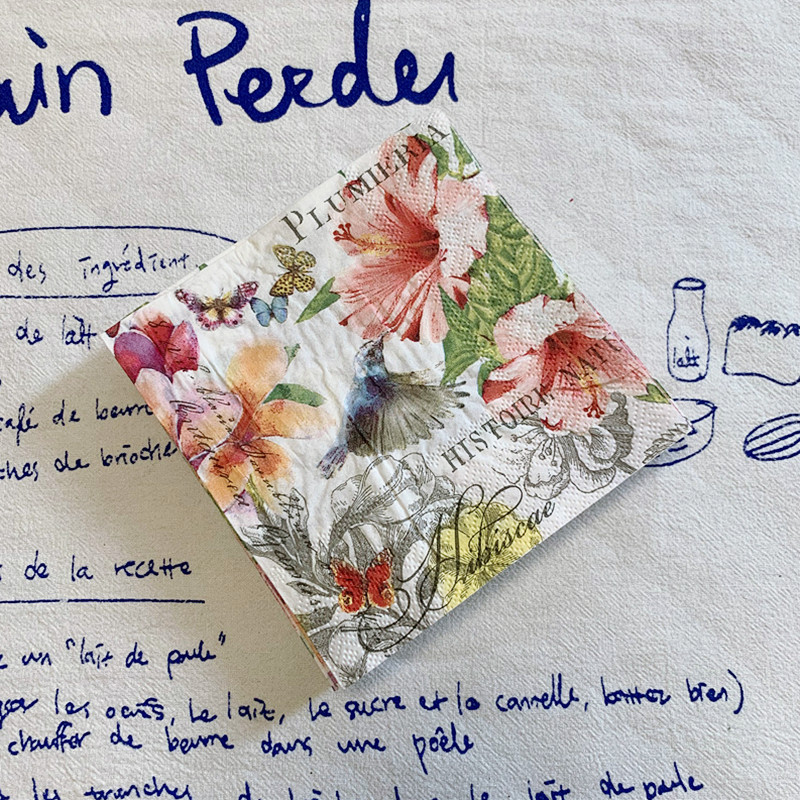 ain Perdu
PLUMERIA
des ingrédient
de lait
lait
HISTOIRE NATU
café de beurre
ches de brioche
Hibiscae
de la recette
un "lait de poule"
les oeufs, le lait, le sucre et la cannelle, battez bien)
chauffer de beurre dans une poêle
les tranches de lait de poule